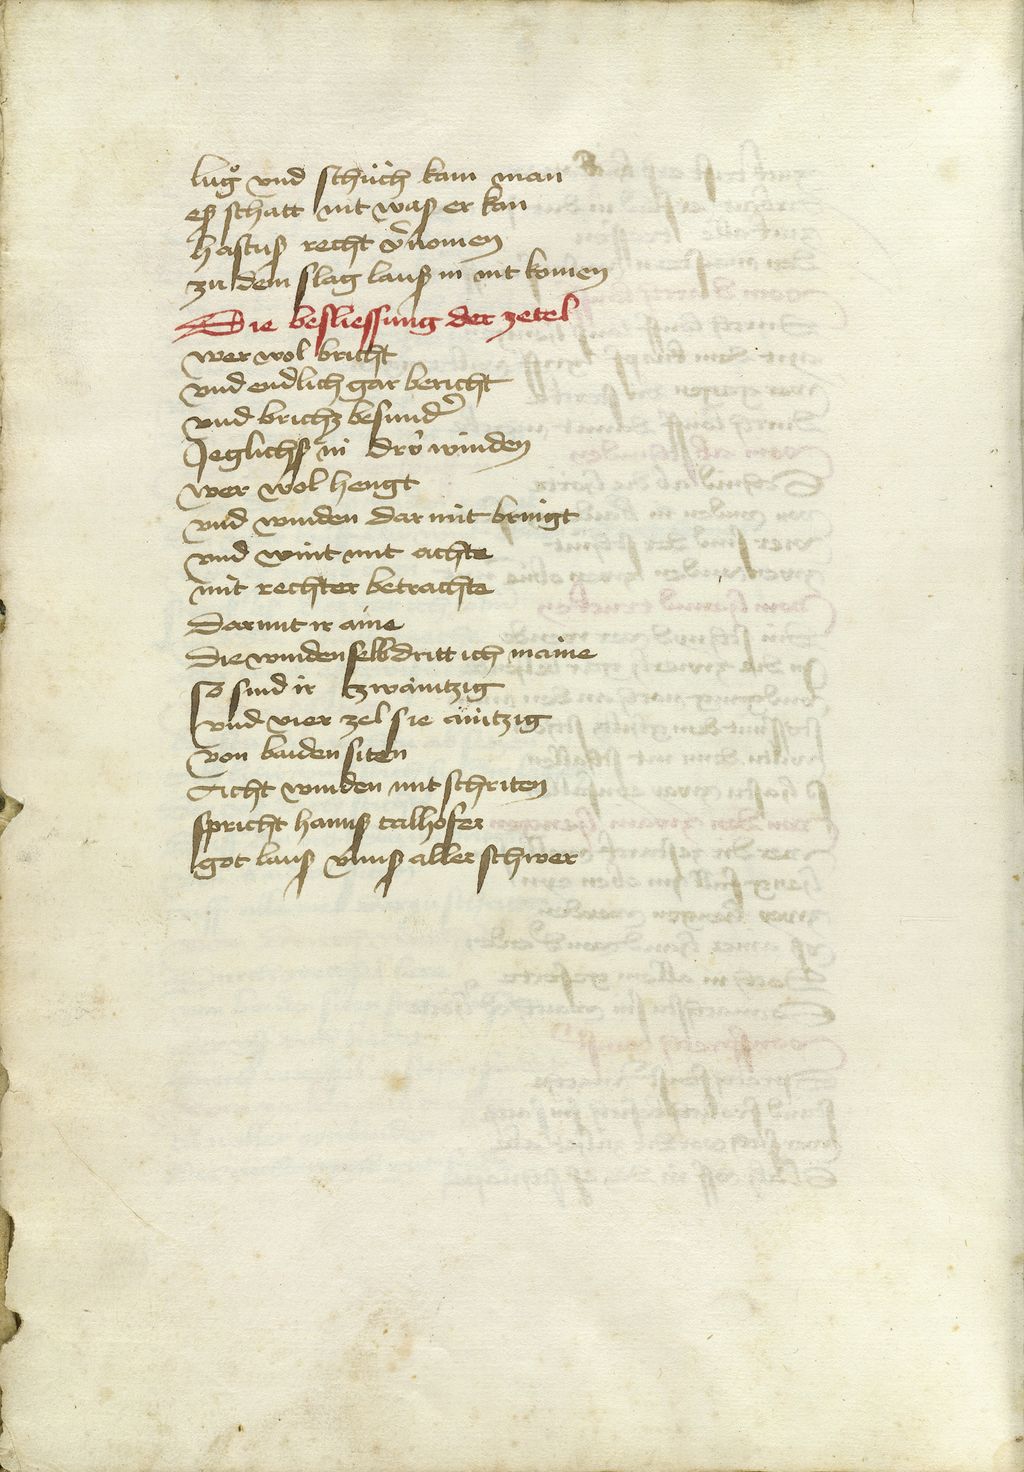 lug und schüch kain man
eß schatt nit waß er kan
hastuß recht v̾nomen
zu dem slag lauß in nit komen
Die besliessung der zetel
wer wol bricht
vnd endlich gar bericht
vnd brichz besund̾
Jeglichß in drÿ winden
wer wol hengt
vnd winden dar mit bringt
vnd wint mit achte
mit rechter betrachte
Darmit ir aine
die winden selb dritt ich maine
so sind ir zwaintzig
vnd vier zel sie aintzig
von baiden siten
Acht winden mit schriten
spricht hanns talhofer
got lauß vnnß aller schwer